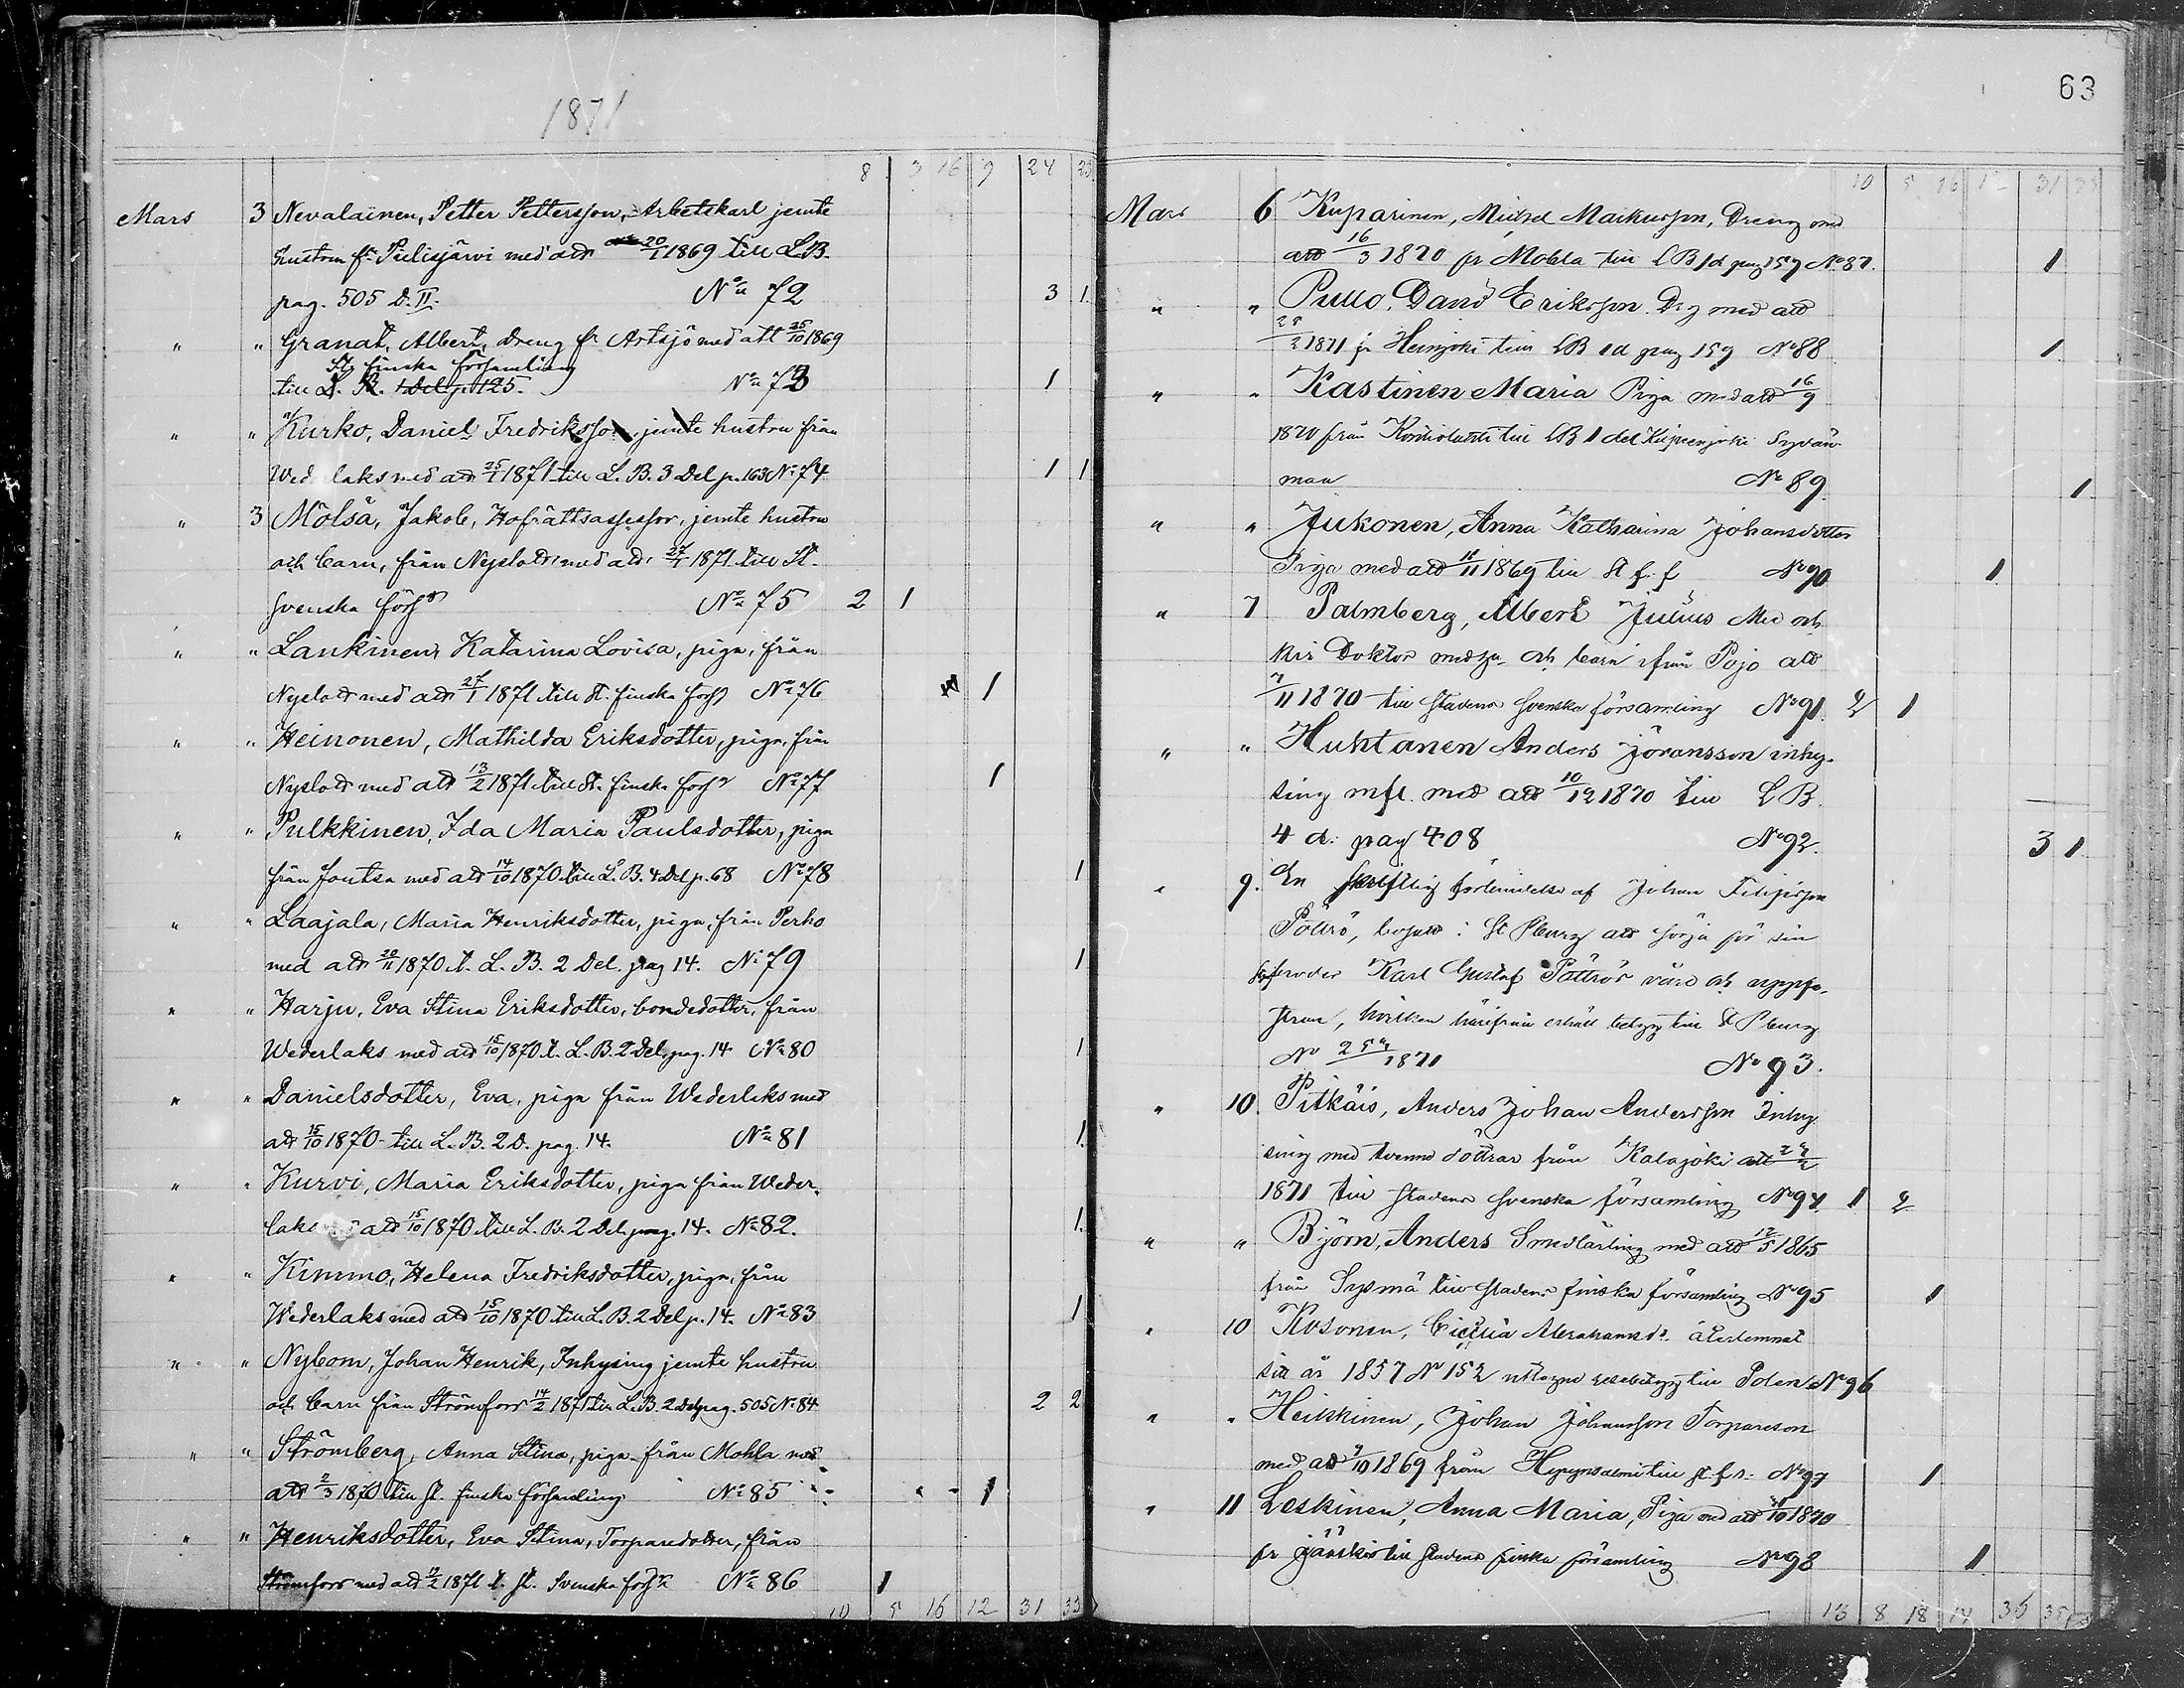 1871
8 3 16 9 24 23
Mars 3 Nevalainen, Petter Pettersson, Arbetskarl jemte
hustru fr Pielisjärvi med att 20/1 1869 till L.B.
pag. 505 D. II. No 72 3 1
" " Granat, Albert, dreng fr Artsjö med att 25/10 1869
St. finska församling
till L. B. 1 Del p. 125. No 73 1
" " Kurko, Daniel Fredriksson, jemte hustru från
Wederlaks med att 25/1 1871 till L. B. 3 Del p. 163 No 74 1 1
" 3 Mölsä, Jakob, Hofrättsassessor, jemte hustru
och barn, från Nyslott med att 27/1 1871 till St.
svenska förs No 75 2 1
" " Lankinen, Katarina Lovisa, piga, från
Nyslott med att 27/1 1871 till St. finska förs No 76 1
" " Heinonen, Mathilda Eriksdotter, piga, från
Nyslott med att 13/2 1871 till St. finska förs No 77 1
" " Pulkkinen, Ida Maria Paulsdotter, piga
från Joutsa med att 14/10 1870 till L. B. 4 Del p. 68 No 78 1
" " Laajala, Maria Henriksdotter, piga, från Perho
med att 20/11 1870 t. L. B. 2 Del. pag 14. No 79 1
" " Harju, Eva Stina Eriksdotter, bondedotter, från
Wederlaks med att 15/10 1870 t. L. B. 2 Del, pag. 14 No 80 1
" " Danielsdotter, Eva, piga från Wederlaks med
att 15/10 1870 till L. B. 2 D. pag. 14. No 81 1
" " Kurvi, Maria Eriksdotter, piga från Weder-
laks att 15/10 1870 till L. B. 2 Del. pag. 14. No 82. 1
" " Kimmo, Helena Fredriksdotter, piga, från
Wederlaks med att 15/10 1870 till L. B. 2 Del p. 14. No 83 1
" " Nybom, Johan Henrik, Inhysing jemte hustru
och barn från Strömfors 14/2 1871 till L. B. 2 Del pag. 505 No 84 2 2
" " Strömberg, Anna Stina, piga från Mohla med
att 2/3 1870 till St. finska församling No 85 1
" " Henriksdotter, Eva Stina, Torparedotter, från
Strömfors med att 1871 t. St. Svenska förs No 86 1
10 5 16 12 31 33
63
10 5 16 12 31 33
Mars 6 Kuparinen, Michel Markusson, Dreng med
att 16/3 1870 fr Mohla till LB 1 d pag 157 No 87. 1
" " Pullo, David Eriksson. Drg med att
25/2 1871 fr Heinjoki till LB 1 d pag 159 No 88 1
" " Kastinen Maria Piga med att 16/9
1870 från Kontiolahti till LB 1 del
maa No 89. 1
" " Jukonen, Anna Katharina Johansdotter
Piga med att 11/11 1869 till St f. f No 90 1
" 7 Palmberg, Albert Julius Med och
Kir Doktor med fru och barn ifrån Pojo att
7/11 1870 till stadens svenska församling No 91. 2 1
" " Huhtanen Anders Jöransson inhy-
sing mfl. med att 10/12 1870 till L B.
4 d. pag 408 No 92. 3 1
" 9. En skriftlig förbindelse af Johan Filipsson
Pöttrö, bosatt i St Pburg att sörja för sin
Karl Gustaf Pöttrös vård och uppfo-
stran, hvilken härifrån erhåll betyg till St Pburg
No 25 1871 No 93.
" 10. Pitkäis, Anders Johan Andersson Inhy-
sing med tvenne döttrar från Kalajoki att
1871 till stadens svenska församling No 94 1 2
" " Björn, Anders Smedlärling med att 12/5 1865
från Sysmä till stadens finska församling No 95 1
" 10 Kosonen, Cicilia Abrahamsdr. återlemnat
sitt år 1857 No 152 uttagne resebetyg till Polen No 96
" " Heikkinen, Johan Johansson Torpareson
med att 7/10 1869 från Hyrynsalmi till St. f. f. No 97 1
" 11 Leskinen, Anna Maria, Piga med att 1870
fr Jääskis till stadens finska församling No 98 1
13 8 18 14 36 35